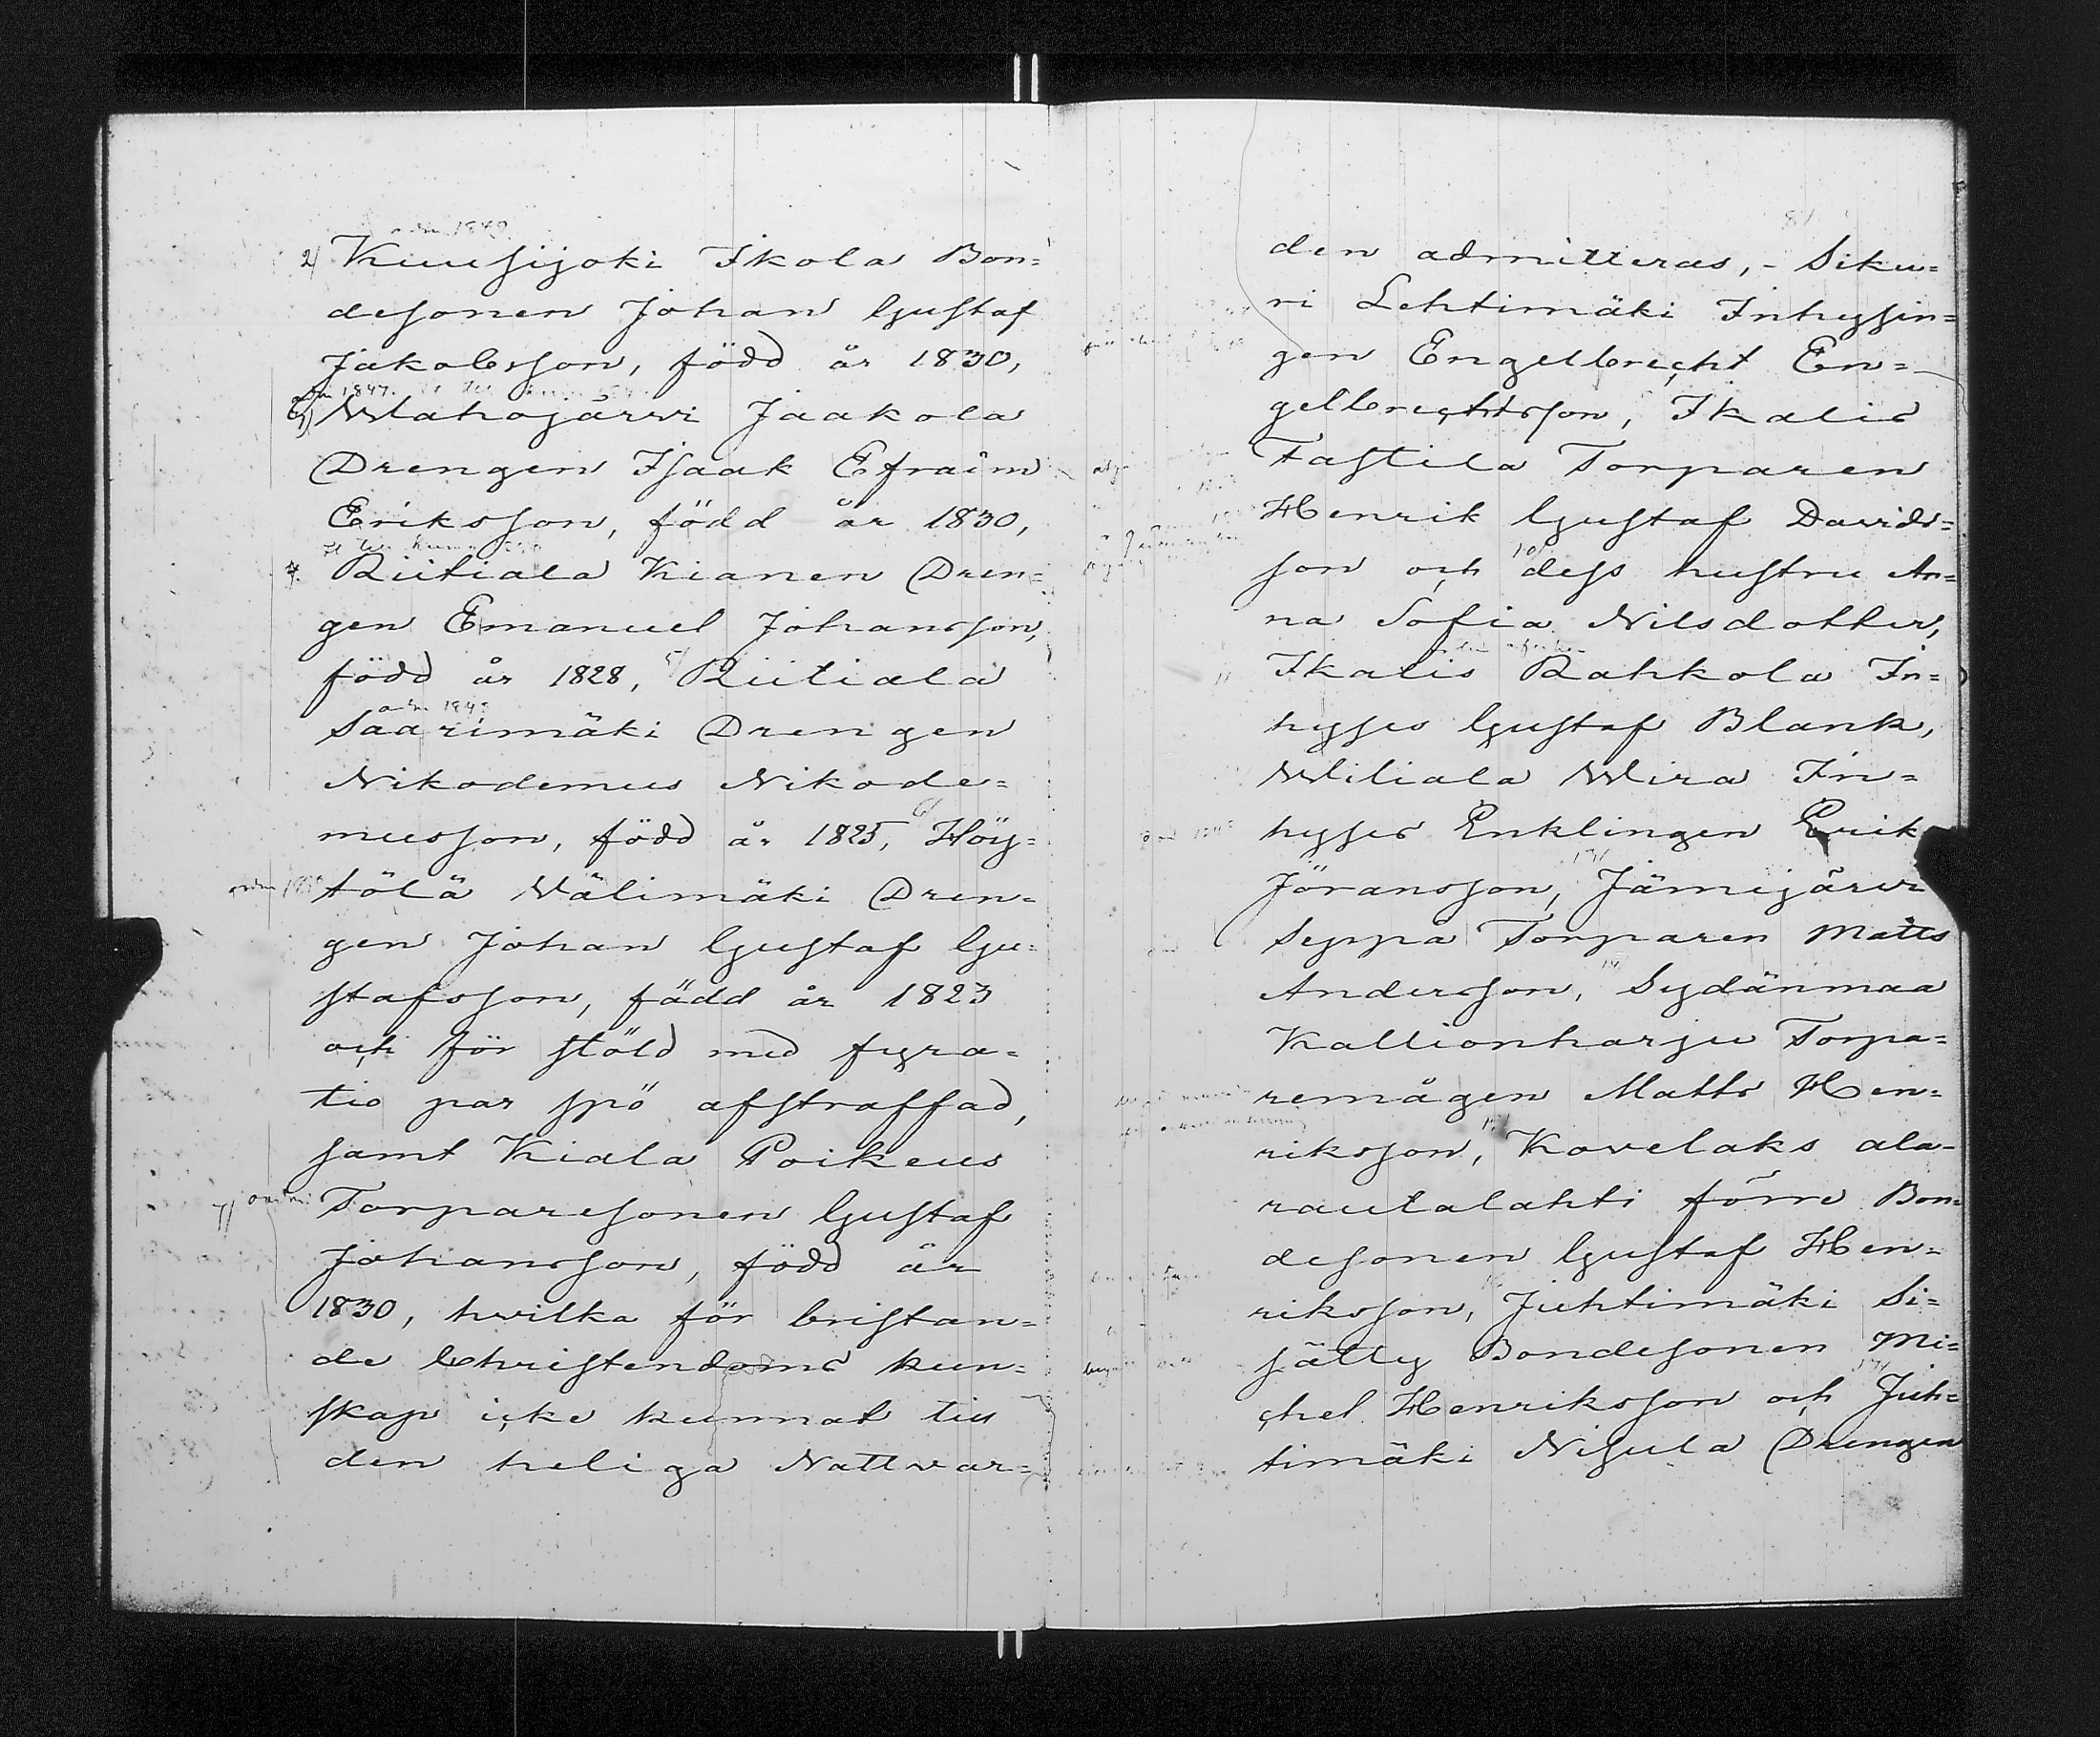 adm 1849
2) Kuusijoki Ikola Bon=
desonen Johan Gustaf
Jakobsson, född år 1830,
adm 1847.
3) Wahojärwi Jaakola
Drengen Isaak Efraim
Eriksson, född år 1830,
4. Riitiala Kianen Dren=
gen Emanuel Johansson,
född år 1828, 5/ Riitiala
adm 1849
Saarimäki Drengen
Nikodemus Nikode=
musson, född år 1825, 6/ Höy=
tölä Wälimäki Dren=
gen Johan Gustaf Gu=
stafsson, född år 1823
och för stöld med fyra=
tio par spö afstraffad,
samt Kiala Poikeus
7/ Torparesonen Gustaf
Johansson, född år
1830, hwilka för bristan=
de Christendoms kun=
skap icke kunnat till
den heliga Nattvar=
81
den admitteras, - Siku=
ri Lehtimäki Inhysin=
gen Engelbrecht En=
gelbrechtsson, Ikalis
Tastila Torparen
Henrik Gustaf Davids=
son och 10/ dess hustru An=
na Sofia Nilsdotter,
Ikalis Rahkola In=
hyses Gustaf Blank,
Wiliala Wira In=
hyses Enklingen Erik
Jöransson, 13/ Jämijärwi
Seppä Torparen Matts
Andersson, Sydänmaa
Kallionharju Torpa=
remågen Matts Hen=
riksson, Kovelaks ala=
rautalahti förre Bon=
desonen Gustaf Hen=
riksson, Juhtimäki Si=
sätty Bondesonen Mi=
chel Henriksson och Juh=
timäki Nisula Drengen